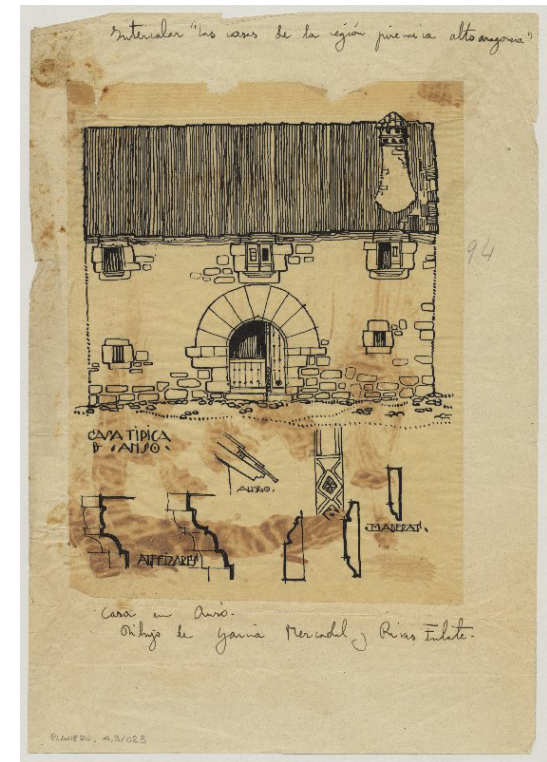 Intercalar "las casas de la región pirenaica alto aragonesa"
94
CASA TIPICA
D ANSO
ALERO.
MADERAS
ALFEIZARES
Casa en Ansó.
Dibujo de García Mercadal y Rivas Eulate.
PLANERO. 4.3/023